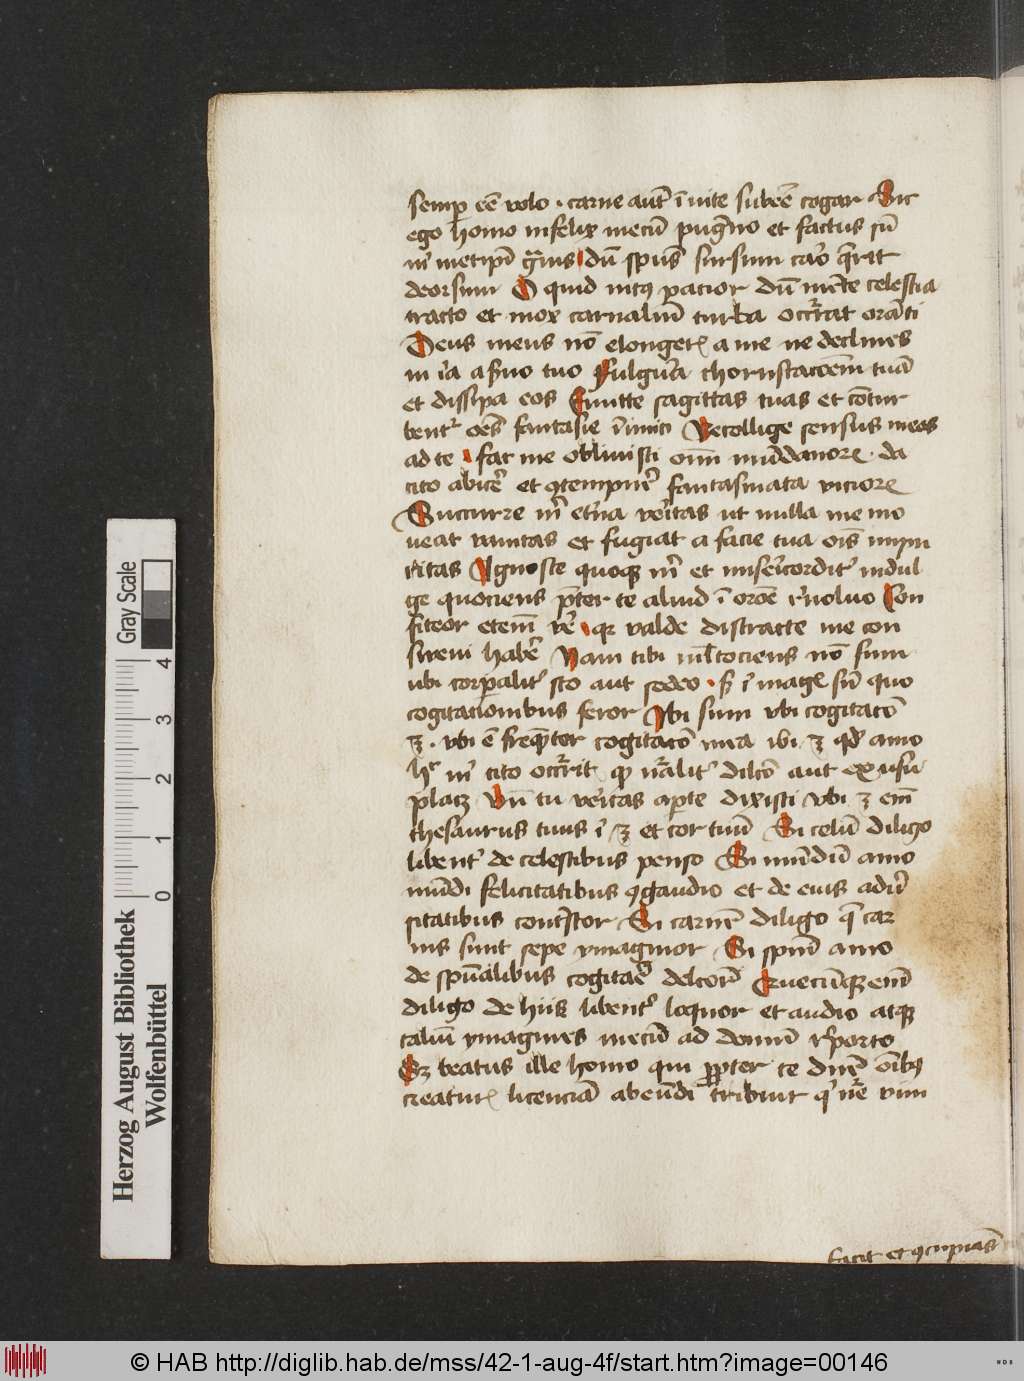 semꝑ eē volo · carne aūt īuite subeē cogar Sic
ego homo infelix mecū pugno et factus sū
m̄ metipī gͣuis dū spūs sursum caro q̄rit
deorsum O quid intꝰ pacior dū mēte celestia
tracto et mox carnaliū turba occͬrat orāti
Deus meus nō elongeris a me ne declines
in ira a ẜuo tuo Fulgura choruscacoēm tuā
et dissipa eos Emitte sagittas tuas et cōtur
bentͬ oēs fantasie īimici Recollige sensus meos
ad te fac me oblivisci om̄ mūdanoꝝ · da
cito abicē et ꝯtempnē fantasmata vicioꝝ
Succurre m̄ etͤna vēitas ut nulla me mo
veat vanitas et fugiat a facie tua ois impu
ritas Ignosce quoqꝫ m̄ et misericorditͬ indul
ge quociens p̄ter te aliud ī oroē reuoluo Con
fiteor etem̄ vē qꝛ valde distracte me con
sueui habē Nam tibi ml̄tociens nō sum
ubi corꝑalitͬ sto aut sedeo · ẜ ī magꝭ sū quo
cogitationibus feror Ibi sum vbi cogitacō
ꝫ · vbi ē freq̄nter cogitacō mea ibi ꝫ qd̄ amo
hͨ m̄ cito occͬrit qͩ nͣalitͬ dilcō aut ex usu
placꝫ Vn̄ tu veritas aꝑte dixisti vbi ꝫ em̄
thesaurus tuus ī ꝫ et cor tuū Si celū diligo
libentͬ de celestibus penso Si mūdū amo
mūdi felicitatibus ꝯgaudio et de eius aduͤ
sitatibus contͥstor Si carnē diligo q̄ car
nis sunt sepe ymaginor Si spm̄ amo
de spūalibus cogitaē delcor̄ Quecūqꝫ em̄
diligo de hiis libentͬ loquor et audio atqꝫ
talium ymagines mecū ad domū reporto
Sꝫ beatus ille homo qui ꝓpter te dnē oībꝰ
creaturꝭ licenciā abeūdi tribuit qͥ nͤe vim
facit et ꝯcupias̄
Herzog August Bibliothek
Wolfenbüttel
0 1 2 3 4
Gray Scale
© HAB http://diglib.hab.de/mss/42-1-aug-4f/start.htm?image=00146
HAB